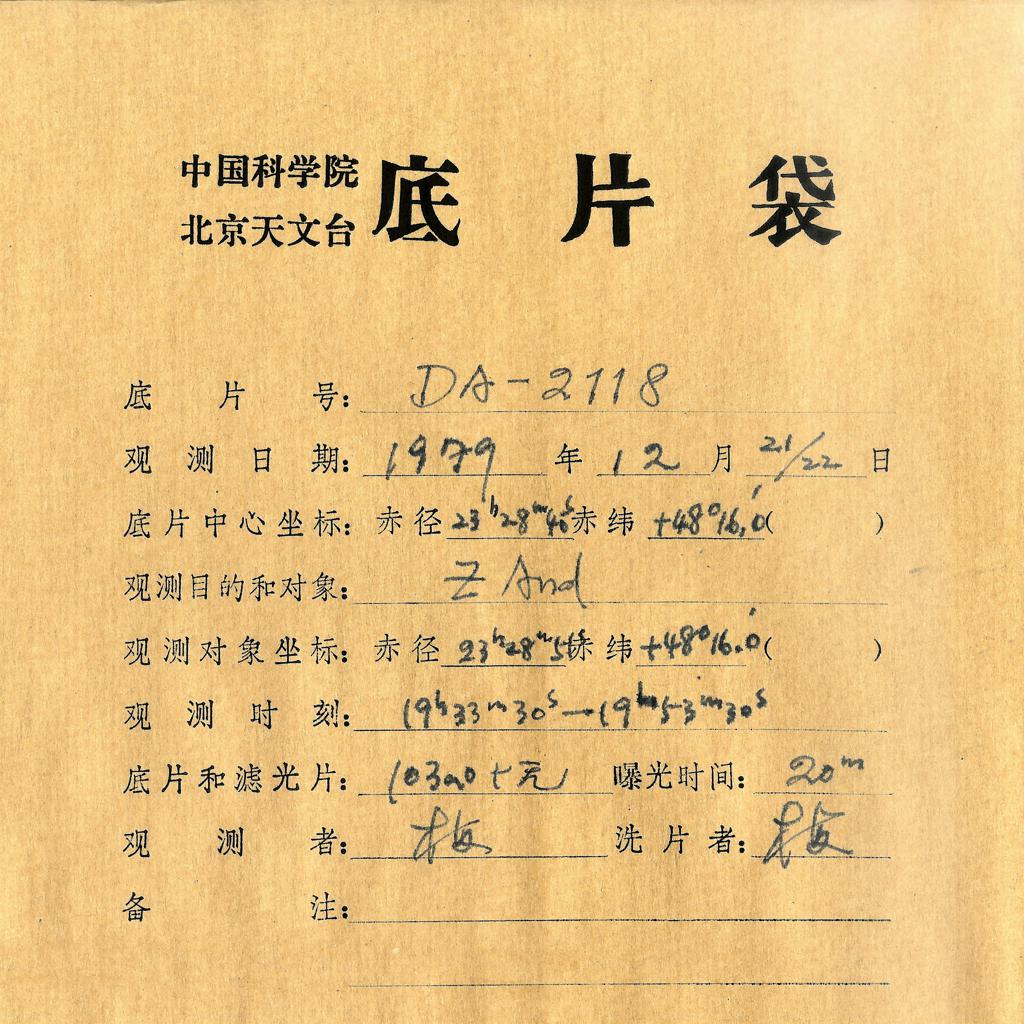 中国科学院
北京天文台
底片袋
底片号: DA-2118
观测日期: 1979年12月21/22日
底片中心坐标: 赤径23ʰ28ᵐ40ˢ赤纬+48°16.0′( )
观测目的和对象: Z And
观测对象坐标: 赤径23ʰ28ᵐ51ˢ赤纬+48°16.0′( )
观测时刻: 19ʰ33ᵐ30ˢ—19ʰ53ᵐ30ˢ
底片和滤光片: 103aO+无 曝光时间: 20ᵐ
观测者: 梅 洗片者: 梅
备注: